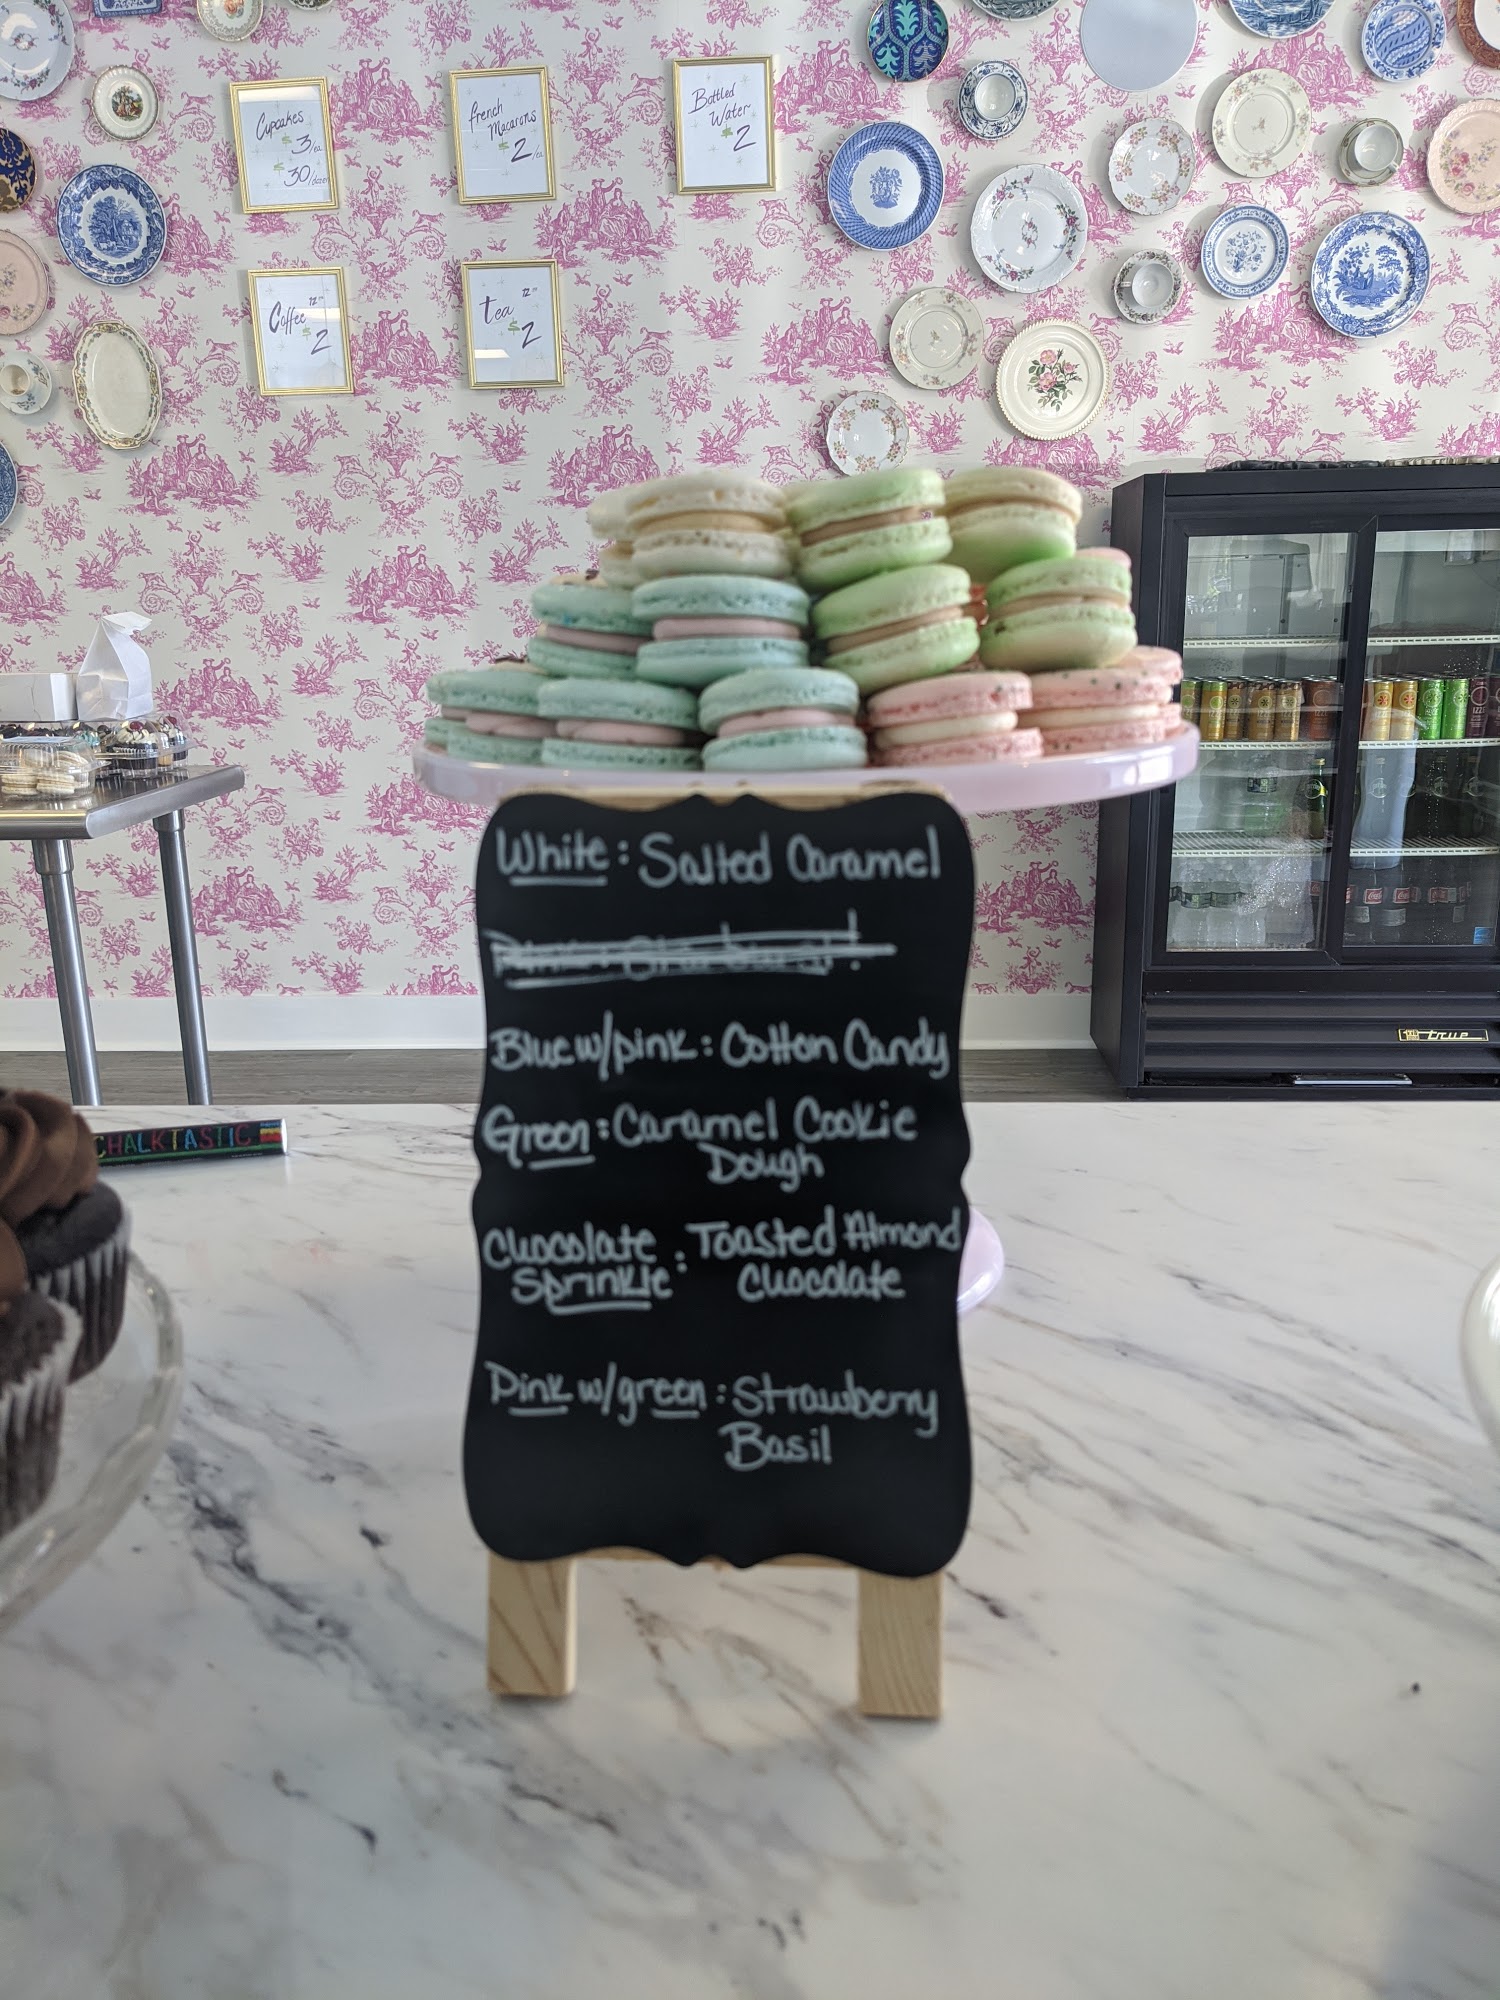 Cupcakes
$3/ea
$30/dozen
French
Macarons
$2/ea
Bottled
Water
$2
Coffee 12oz
$2
tea 12oz
$2
White: Salted Caramel
Blue w/pink: Cotton Candy
Green: Caramel Cookie
Dough
Chocolate
Sprinkle : Toasted Almond
Chocolate
Pink w/green: Strawberry
Basil
CHALKTASTIC
true
IZZE